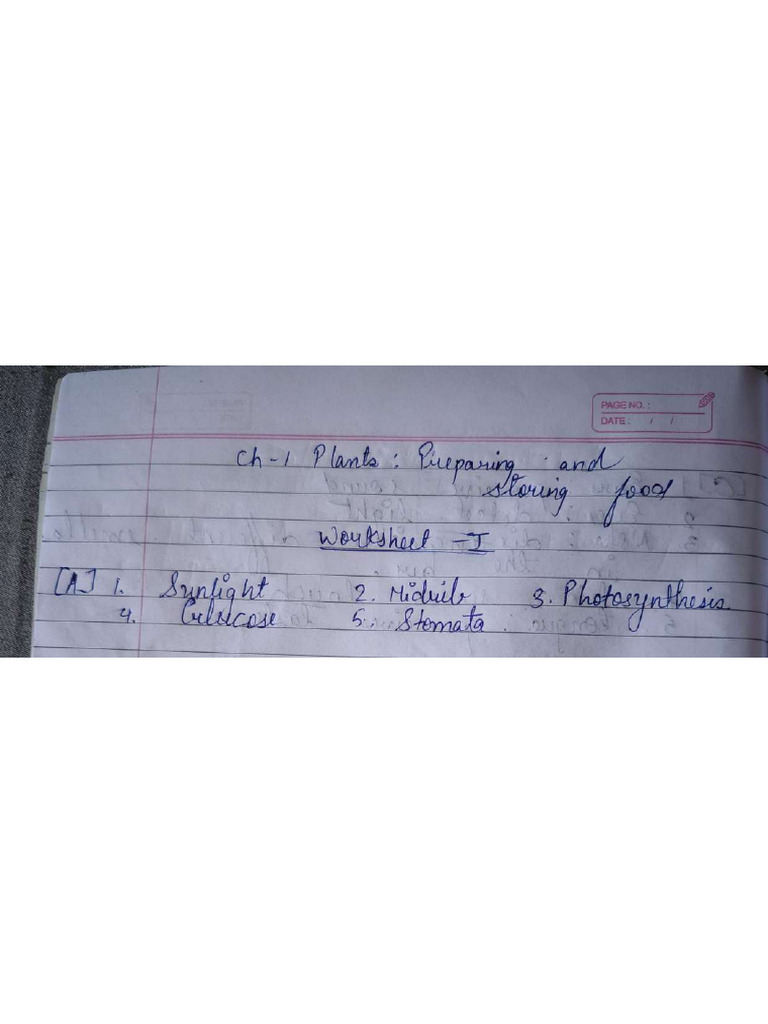 PAGE NO. :
DATE : / /
Ch-1 Plants : Preparing and
storing food
Worksheet - I
[A] 1. Sunlight 2. Midrib 3. Photosynthesis
4. Glucose 5. Stomata